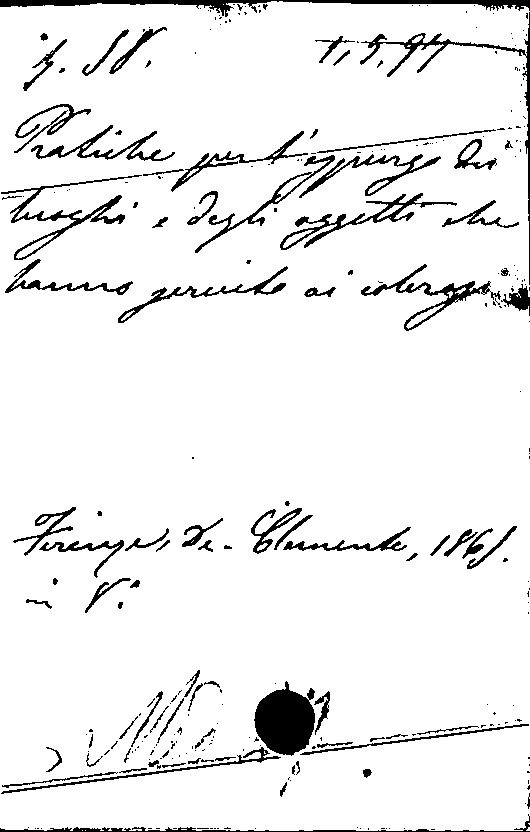 1.5.97
Pratiche per l'espurgo dei
luoghi e degli oggetti che
hanno servito ai colerosi
Firenze, De-Clemente, 1865.
in 8.°